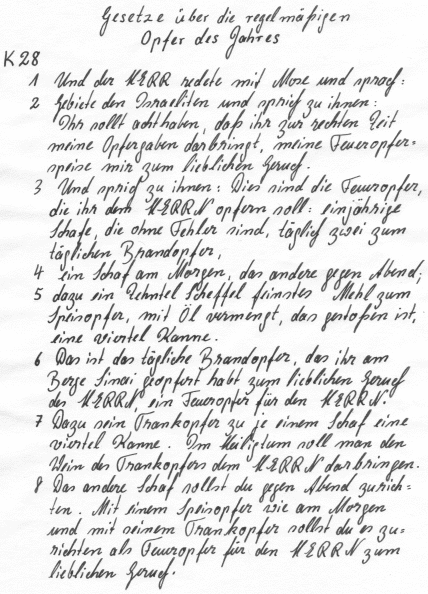 Gesetze über die regelmäßigen
Opfer des Jahres
K 28
1 Und der HERR redete mit Mose und sprach:
2 Gebiete den Israeliten und sprich zu ihnen:
Ihr sollt acht haben, daß ihr zur rechten Zeit
meine Opfergaben darbringt, meine Feueropfer=
speise mir zum lieblichen Geruch.
3 Und sprich zu ihnen: Dies sind die Feueropfer,
die ihr dem HERRN opfern soll: einjährige
Schafe, die ohne Fehler sind, täglich zwei zum
täglichen Brandopfer,
4 ein Schaf am Morgen, das andere gegen Abend;
5 dazu ein Zehntel Scheffel feinstes Mehl zum
Speisopfer, mit Öl vermengt, das gestoßen ist,
eine viertel Kanne.
6 Das ist das tägliche Brandopfer, das ihr am
Berge Sinai geopfert habt zum lieblichen Geruch
des HERRN, ein Feueropfer für den HERRN.
7 Dazu sein Trankopfer zu je einem Schaf eine
viertel Kanne. Im Heiligtum soll man den
Wein des Trankopfers dem HERRN darbringen.
8 Das andere Schaf sollst du gegen Abend zurich=
ten. Mit einem Speisopfer wie am Morgen
und mit seinem Trankopfer sollst du es zu=
richten als Feueropfer für den HERRN zum
lieblichen Geruch.